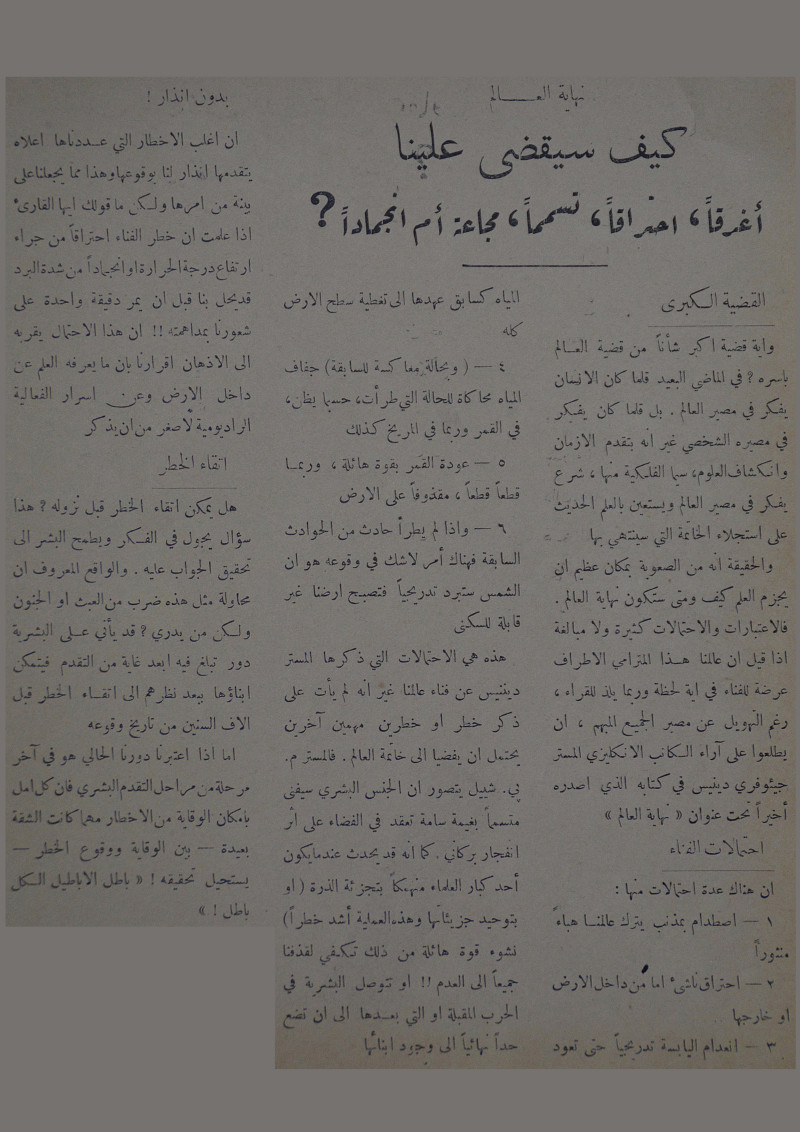 نهاية العـــالم
كيف سيقضى علينا
أغرقاً، احتراقاً، تسمماً، مجاعة أم انجماداً؟
القضية الكبرى
واية قضية اكبر شأناً من قضية العـالم
باسره؟ في الماضي البعيد قلما كان الانسان
يفكر في مصير العالم. بل قلما كان يفكر
في مصيره الشخصي غير انه بتقدم الازمان
وانكشاف العلوم، سيما الفلكية منها، شرع
يفكر في مصير العالم ويستعين بالعلم الحديث
على استجلاء الخاتمة التي سينتهي بها
والحقيقة انه من الصعوبة بمكان عظيم ان
يجزم العلم كيف ومتى ستكون نهاية العالم.
فالاعتبارات والاحتمالات كثيرة ولا مبالغة
اذا قيل ان عالمنا هـذا المترامي الاطراف
عرضة للفناء في اية لحظة وربما يلذ للقراء،
رغم التهويل عن مصير الجميع المبهم، ان
يطلعوا على آراء الكاتب الانكليزي المستر
جيئوفري دينيس في كتابه الذي اصدره
أخيراً تحت عنوان «نهاية العالم»
احتمالات الفناء
ان هناك عدة احتمالات منها:
١ — اصطدام بمذنب يترك عالمنـا هباء
منثوراً
٢ — احتراق ناشىء اما من داخل الارض
او خارجها
٣ — انعدام اليابسة تدريجياً حتى تعود
المياه كسابق عهدها الى تغطية سطح الارض
كله
٤ — (وبحالة معاكسة للسابقة) جفاف
المياه محاكاة للحالة التي طرأت، حسبما يظن،
في القمر وربما في المريخ كذلك
٥ — عودة القمر بقوة هائلة، وربمـا
قطعاً قطعاً، مقذوفاً على الارض
٦ — واذا لم يطرأ حادث من الحوادث
السابقة فهناك أمر لاشك في وقوعه هو ان
الشمس ستبرد تدريجياً فتصبح ارضنا غير
قابلة للسكنى
هذه هي الاحتمالات التي ذكرها المستر
دينيس عن فناء عالمنا غير انه لم يأت على
ذكر خطر او خطرين مهمين آخرين
يحتمل ان يفضيا الى خاتمة العالم. فالمستر م.
بي. شيل يتصور ان الجنس البشري سيفنى
متسمماً بغيمة سامة تعقد في الفضاء على أثر
انفجار بركاني. كما انه قد يحدث عندما يكون
أحد كبار العلماء منهمكاً بتجزئة الذرة (او
بتوحيد جزيئاتها وهذه العملية أشد خطراً)
نشوء قوة هائلة من ذلك تكفي لقذفنا
جميعاً الى العدم!! او تتوصل البشرية في
الحرب المقبلة او التي بعـدها الى ان تضع
حداً نهائياً الى وجود ابنائها
بدون انذار!
ان اغلب الاخطار التي عـددناها اعلاه
يتقدمها انذار لنا بوقوعها وهذا مما يجعلنا على
بينة من امرها ولكن ما قولك ايها القارىء
اذا علمت ان خطر الفناء احتراقاً من جراء
ارتفاع درجة الحرارة او انجماداً من شدة البرد
قد يحل بنا قبل ان يمر دقيقة واحدة على
شعورنا بمداهمته!! ان هذا الاحتمال يقربه
الى الاذهان اقرارنا بان ما يعرفه العلم عن
داخل الارض وعن اسرار الفعالية
الراديومية لأصغر من ان يذكر
اتقاء الخطر
هل يمكن اتقاء الخطر قبل نزوله؟ هذا
سؤال يجول في الفـكر ويطمح البشر الى
تحقيق الجواب عليه. والواقع المعروف ان
محاولة مثل هذه ضرب من العبث او الجنون
ولكن من يدري؟ قد يأتي عـلى البشرية
دور تبلغ فيه ابعد غاية من التقدم فيتمكن
ابناؤها ببعد نظرهم الى اتقـاء الخطر قبل
الاف السنين من تاريخ وقوعه
اما اذا اعتبرنا دورنا الحالي هو في آخر
مرحلة من مراحل التقدم البشري فان كل امل
بامكان الوقاية من الاخطار مهما كانت الشقة
بعيدة — بين الوقاية ووقوع الخطر —
يستحيل تحقيقه! «باطل الاباطيل الـكل
باطل!»